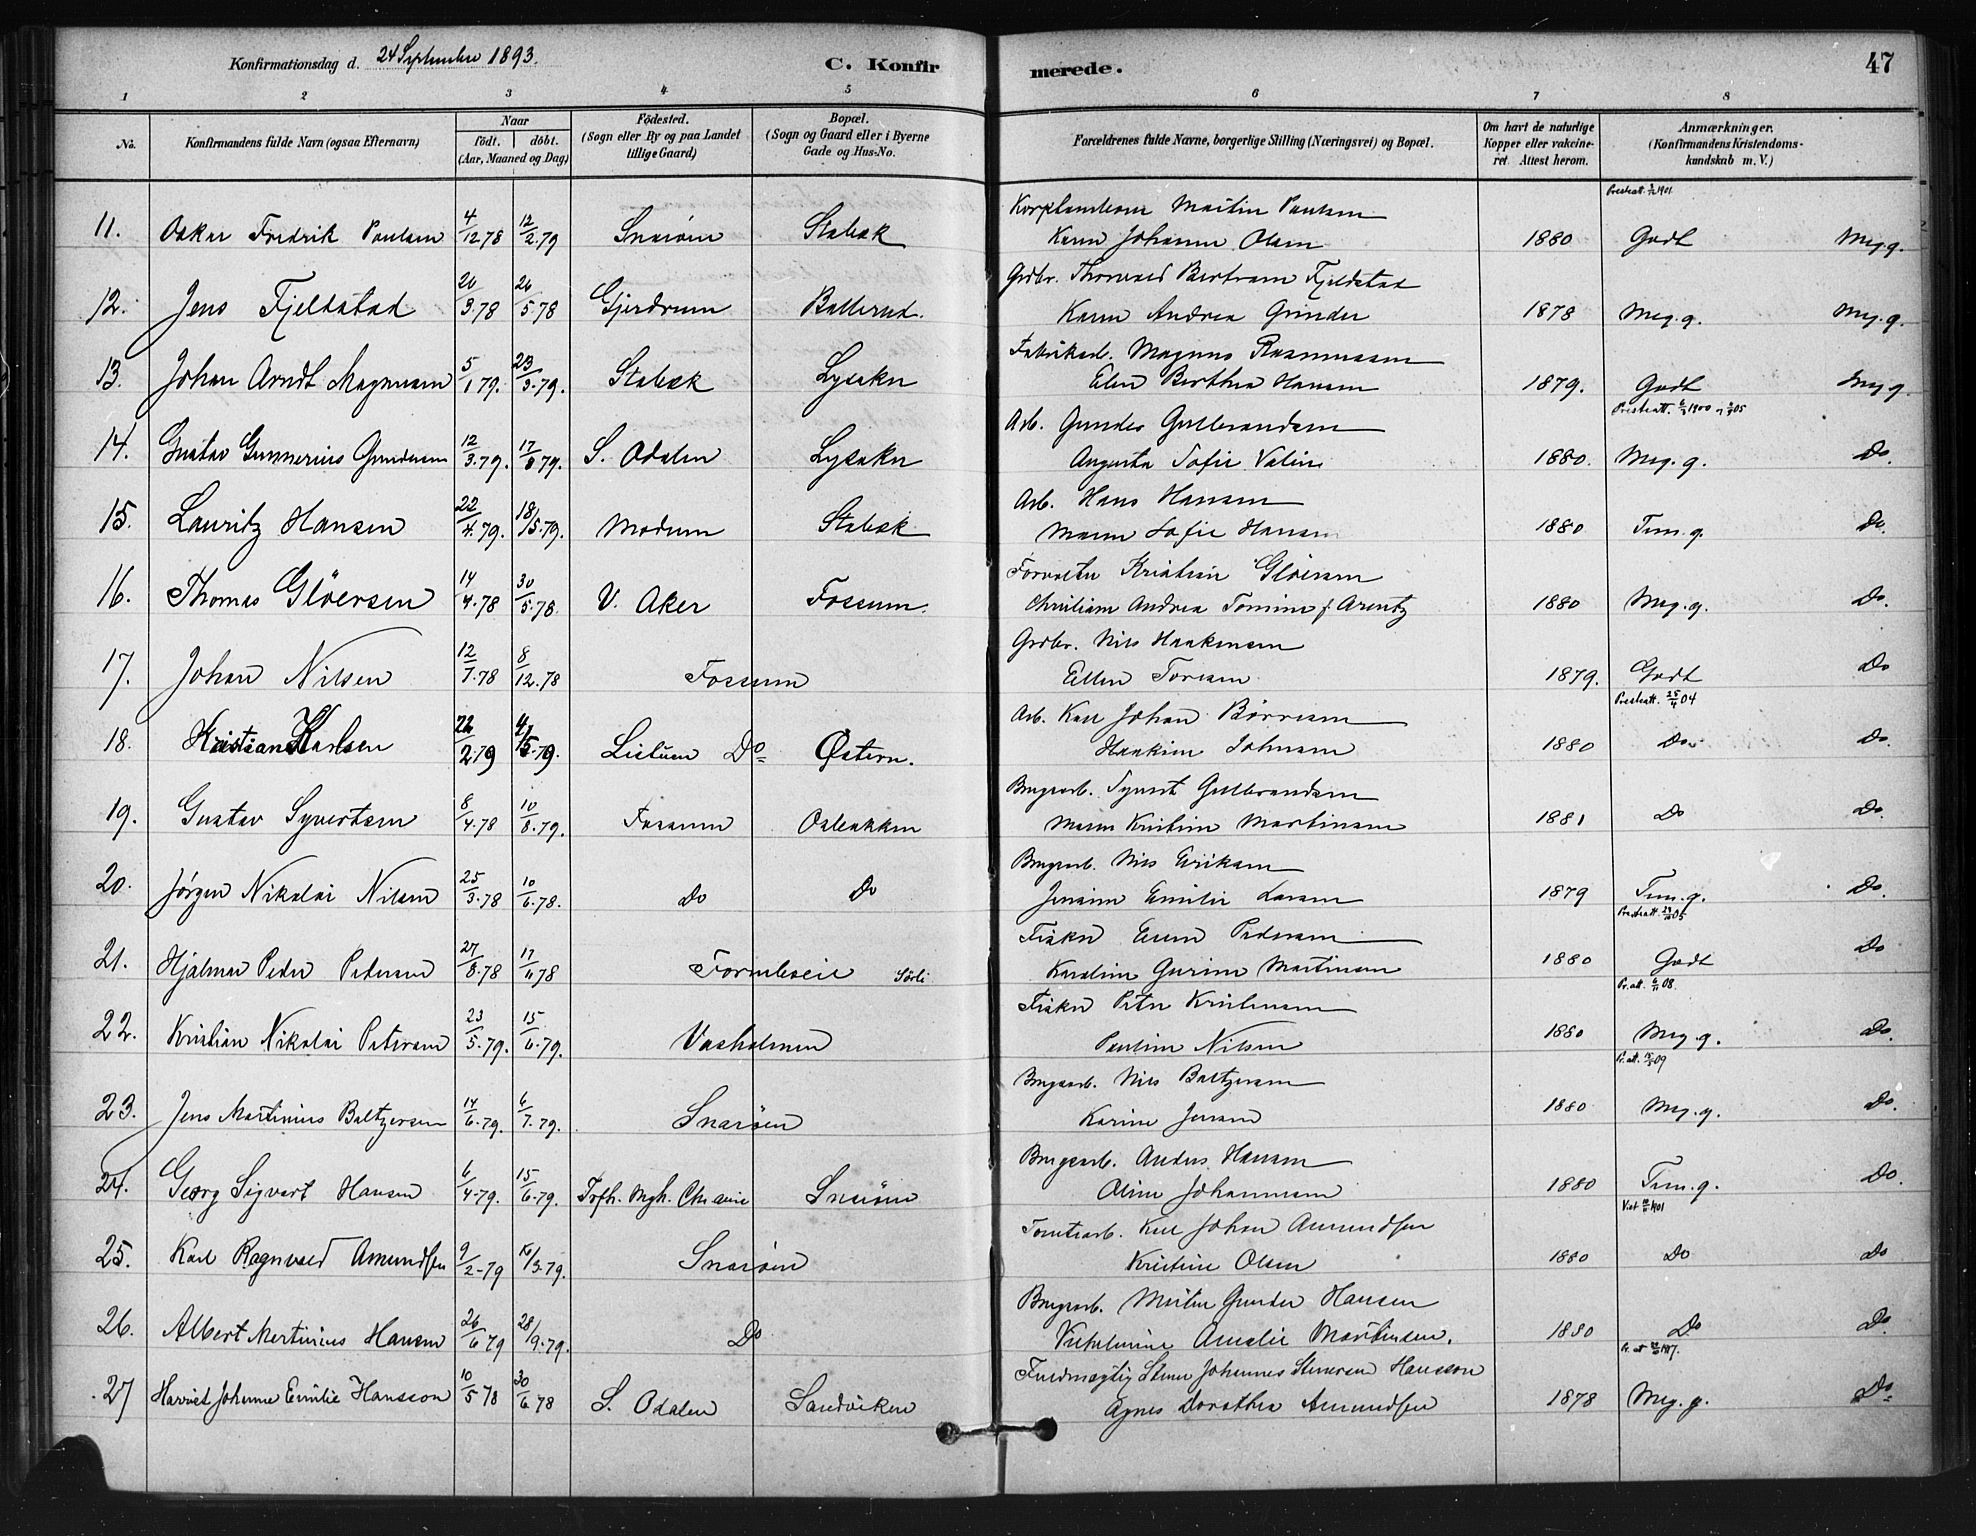 Konfirmationsdag d. 24 September 1893.
C. Konfirmerede.
47
1 2 3 4 5 6 7 8
No. Konfirmandens fulde Navn (ogsaa Efternavn) Naar født. døbt. (Aar, Maaned og Dag) Fødested. (Sogn eller By og paa Landet tillige Gaard) Bopæl. (Sogn og Gaard eller i Byerne Gade og Hus-No. Forældrenes fulde Navne, borgerlige Stilling (Næringsvei) og Bopæl. Om havt de naturlige Kopper eller vakcineret. Attest herom. Anmærkninger. (Konfirmandens Kristendomskundskab m. V.)
Martin Paulsen
11. Oskar Fredrik Paulsen 4/12 78 12/2.79 Snarøen Stabæk Karen Johanne Olsen 1880 Godt Meg.g.
Grdbr. Thorvald Bertram Fjeldstad
12. Jens Fjeldstad 20/3.78 26/5.78 Gjerdrum Ballerud. Karen Andrea Grinder 1878 Meg.g. Meg.g.
Fabrikarb. Magnus Rasmussen
13. Johan Arndt Magnussen 5/1 79. 23/3.79. Stabæk Lysaker Elen Berthea Hansen 1879. Godt Meg.g
Arb. Gunder Gulbrandsen
14. Gustav Gunnerius Gundersen 12/3.79. 17/8 79. S. Odalen Lysaker Augusta Sofie 1880. Meg.g. Do.
Arb. Hans Hansen
15. Lauritz Hansen 22/4.79. 18/5.79. Modum Stabæk Maren Sofie Hansen 1880 Tem.g. Do.
Forvalter Kristian Gløersen
16. Thomas Gløersen 14/4.78 30/5.78. V. Aker Fossum. Christiane Andrea f. Arentz 1880 Meg.g. Do.
Grdbr. Nils Haakensen
17. Johan Nilsen 12/7.78 8/12.78 Fossum Ellen Toresen 1879. Godt Do
Prestatt. 25/4 04
Arb. Karl Johan Børresen
18. Kristian Karlsen 22/2.79 4/5.79. Listuen Do Østern. Johnsen 1880 Do. Do.
Brugsarb. Syvert Gulbrandsen
19. Gustav Syvertsen 8/4.78 10/8.79. Fossum Osbakken Maren Kristine Martinsen 1881 Do Do.
Brugsarb. Nils Eriksen
20. Jørgen Nikolai Nilsen 25/3.78 10/6.78. Do Do Jensine Emilie Larsen 1879 Tem.g. Do.
Fisker Pedersen
21. Hjalmar Peder Pedersen 27/8.78 17/11 78 Fornebveie Sørli Karoline Gurine Martinsen 1880 Godt Do
Pr. att. 6/11 08.
Fisker Peter Kristensen
22. Kristian Nikolai Petersen 23/5.79. 15/6.79. Vasholmen Pauline Nilsen 1880 Meg.g. Do.
Brugsarb. Nils Baltzersen
23. Jens Martinius Baltzersen 14/6.79. 6/7.79. Snarøen Karine Jensen 1880 Meg.g. Do.
Brugsarb. Anders Hansen
24. Georg Sigvart Hansen 6/4.79. 15/6.79. Trefh. Mgh. Chr.ania Snarøen Oline Johannesen 1880 Tem.g. Do.
Tomtearb. Karl Johan Amundsen
25. Karl Ragnvald Amundsen 9/2-79 16/3.79. Snarøen Kristine Olsen 1880 Do Do
Brugsarb. Martin Gunder Hansen
26. Albert Martinius Hansen 26/6 79 28/9.79. Do Vilhelmine Amalie Martinsen. 1880 Do Do.
Fuldmægtig Johannes Hansson
27 Harriet Johanne Emilie Hansson 10/5 78 30/6 78 S. Odalen Sandviken Agnes Dorothea Amundsen 1878 Meg.g. Do.